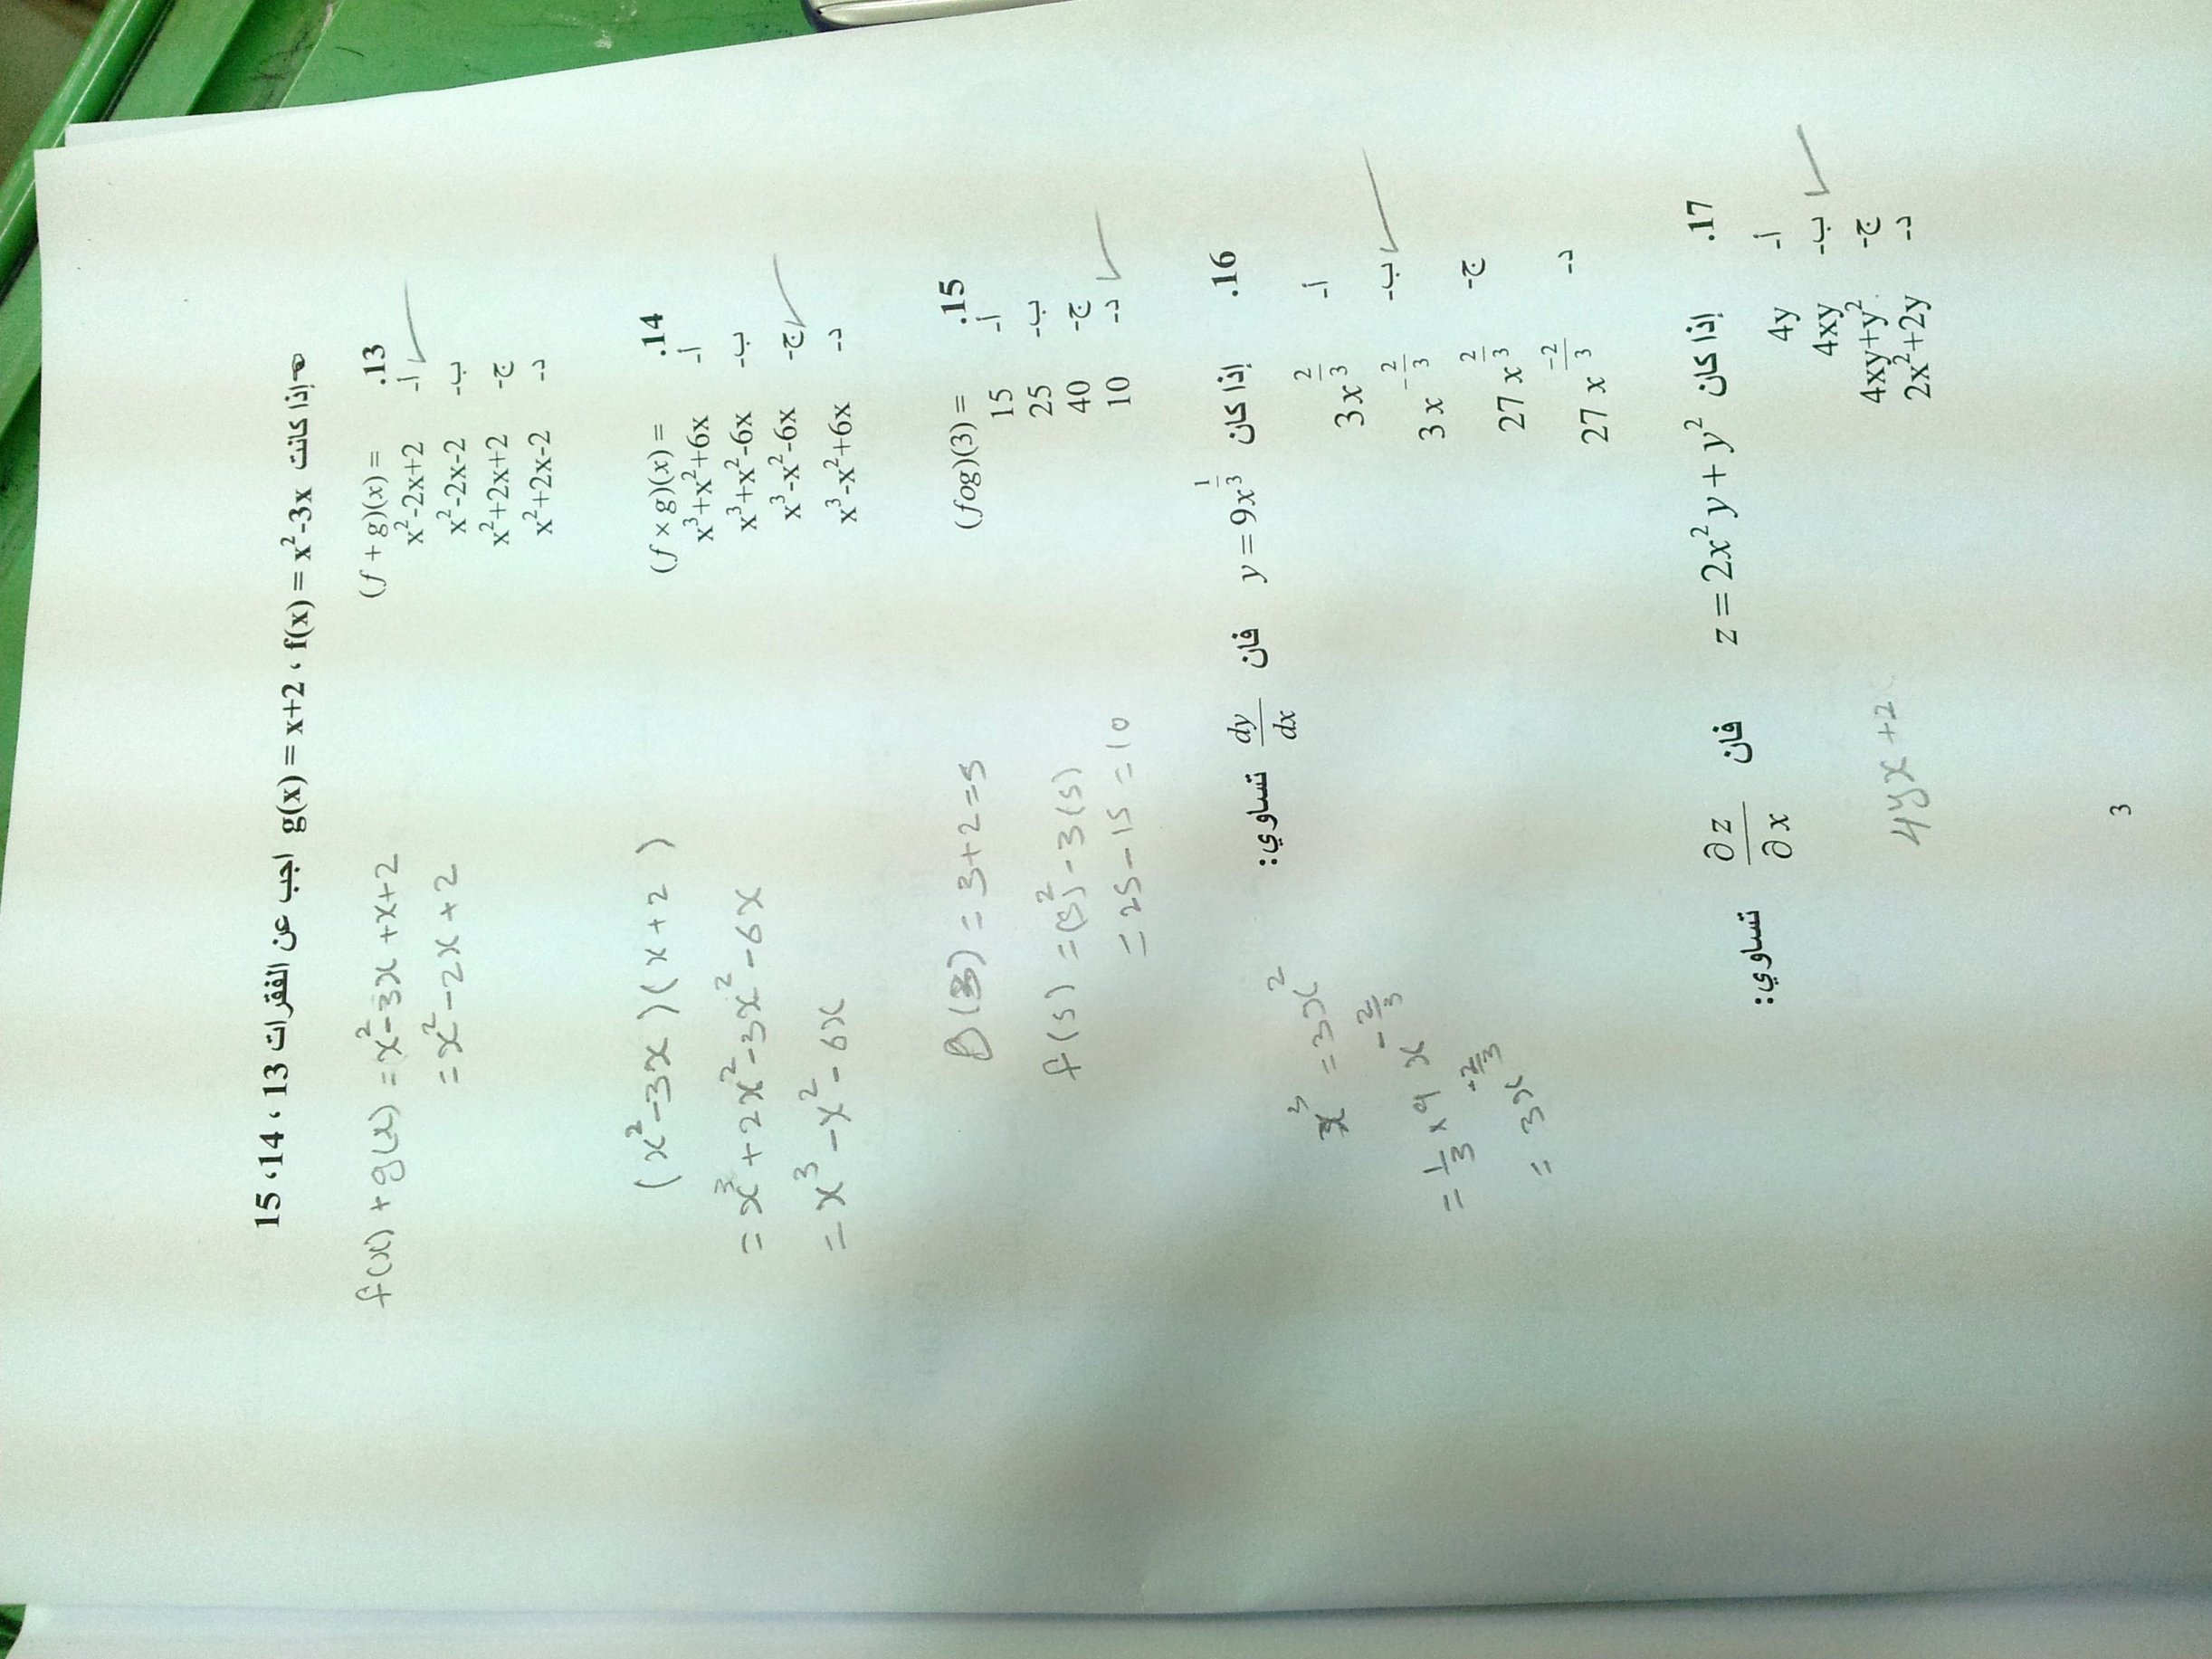 إذا كانت f(x) = x²-3x ، g(x) = x+2 اجب عن الفقرات 13 ، 14 ، 15
.13 (f + g)(x) =
أ- x²-2x+2 ✓
ب- x²-2x-2
ج- x²+2x+2
د- x²+2x-2
f(x) + g(x) = x²-3x+x+2
= x²-2x+2
.14 (f × g)(x) =
أ- x³+x²+6x
ب- x³+x²-6x
ج- x³-x²-6x ✓
د- x³-x²+6x
(x²-3x)(x+2)
= x³+2x²-3x²-6x
= x³-x²-6x
.15 (fog)(3) =
أ- 15
ب- 25
ج- 40
د- 10 ✓
(3) = 3+2=5
f(5) = (5)²-3(5)
= 25-15 = 10
.16 إذا كان y = 9x^(1/3) فان dy/dx تساوي:
أ- 3x^(2/3)
ب- 3x^(-2/3) ✓
ج- 27x^(2/3)
د- 27x^(-2/3)
x³ = 3x²
= 1/3 × 9 x^(-2/3)
= 3x
.17 إذا كان z = 2x²y + y² فان ∂z/∂x تساوي:
أ- 4y
ب- 4xy ✓
ج- 4xy+y²
د- 2x²+2y
4yx+2
3